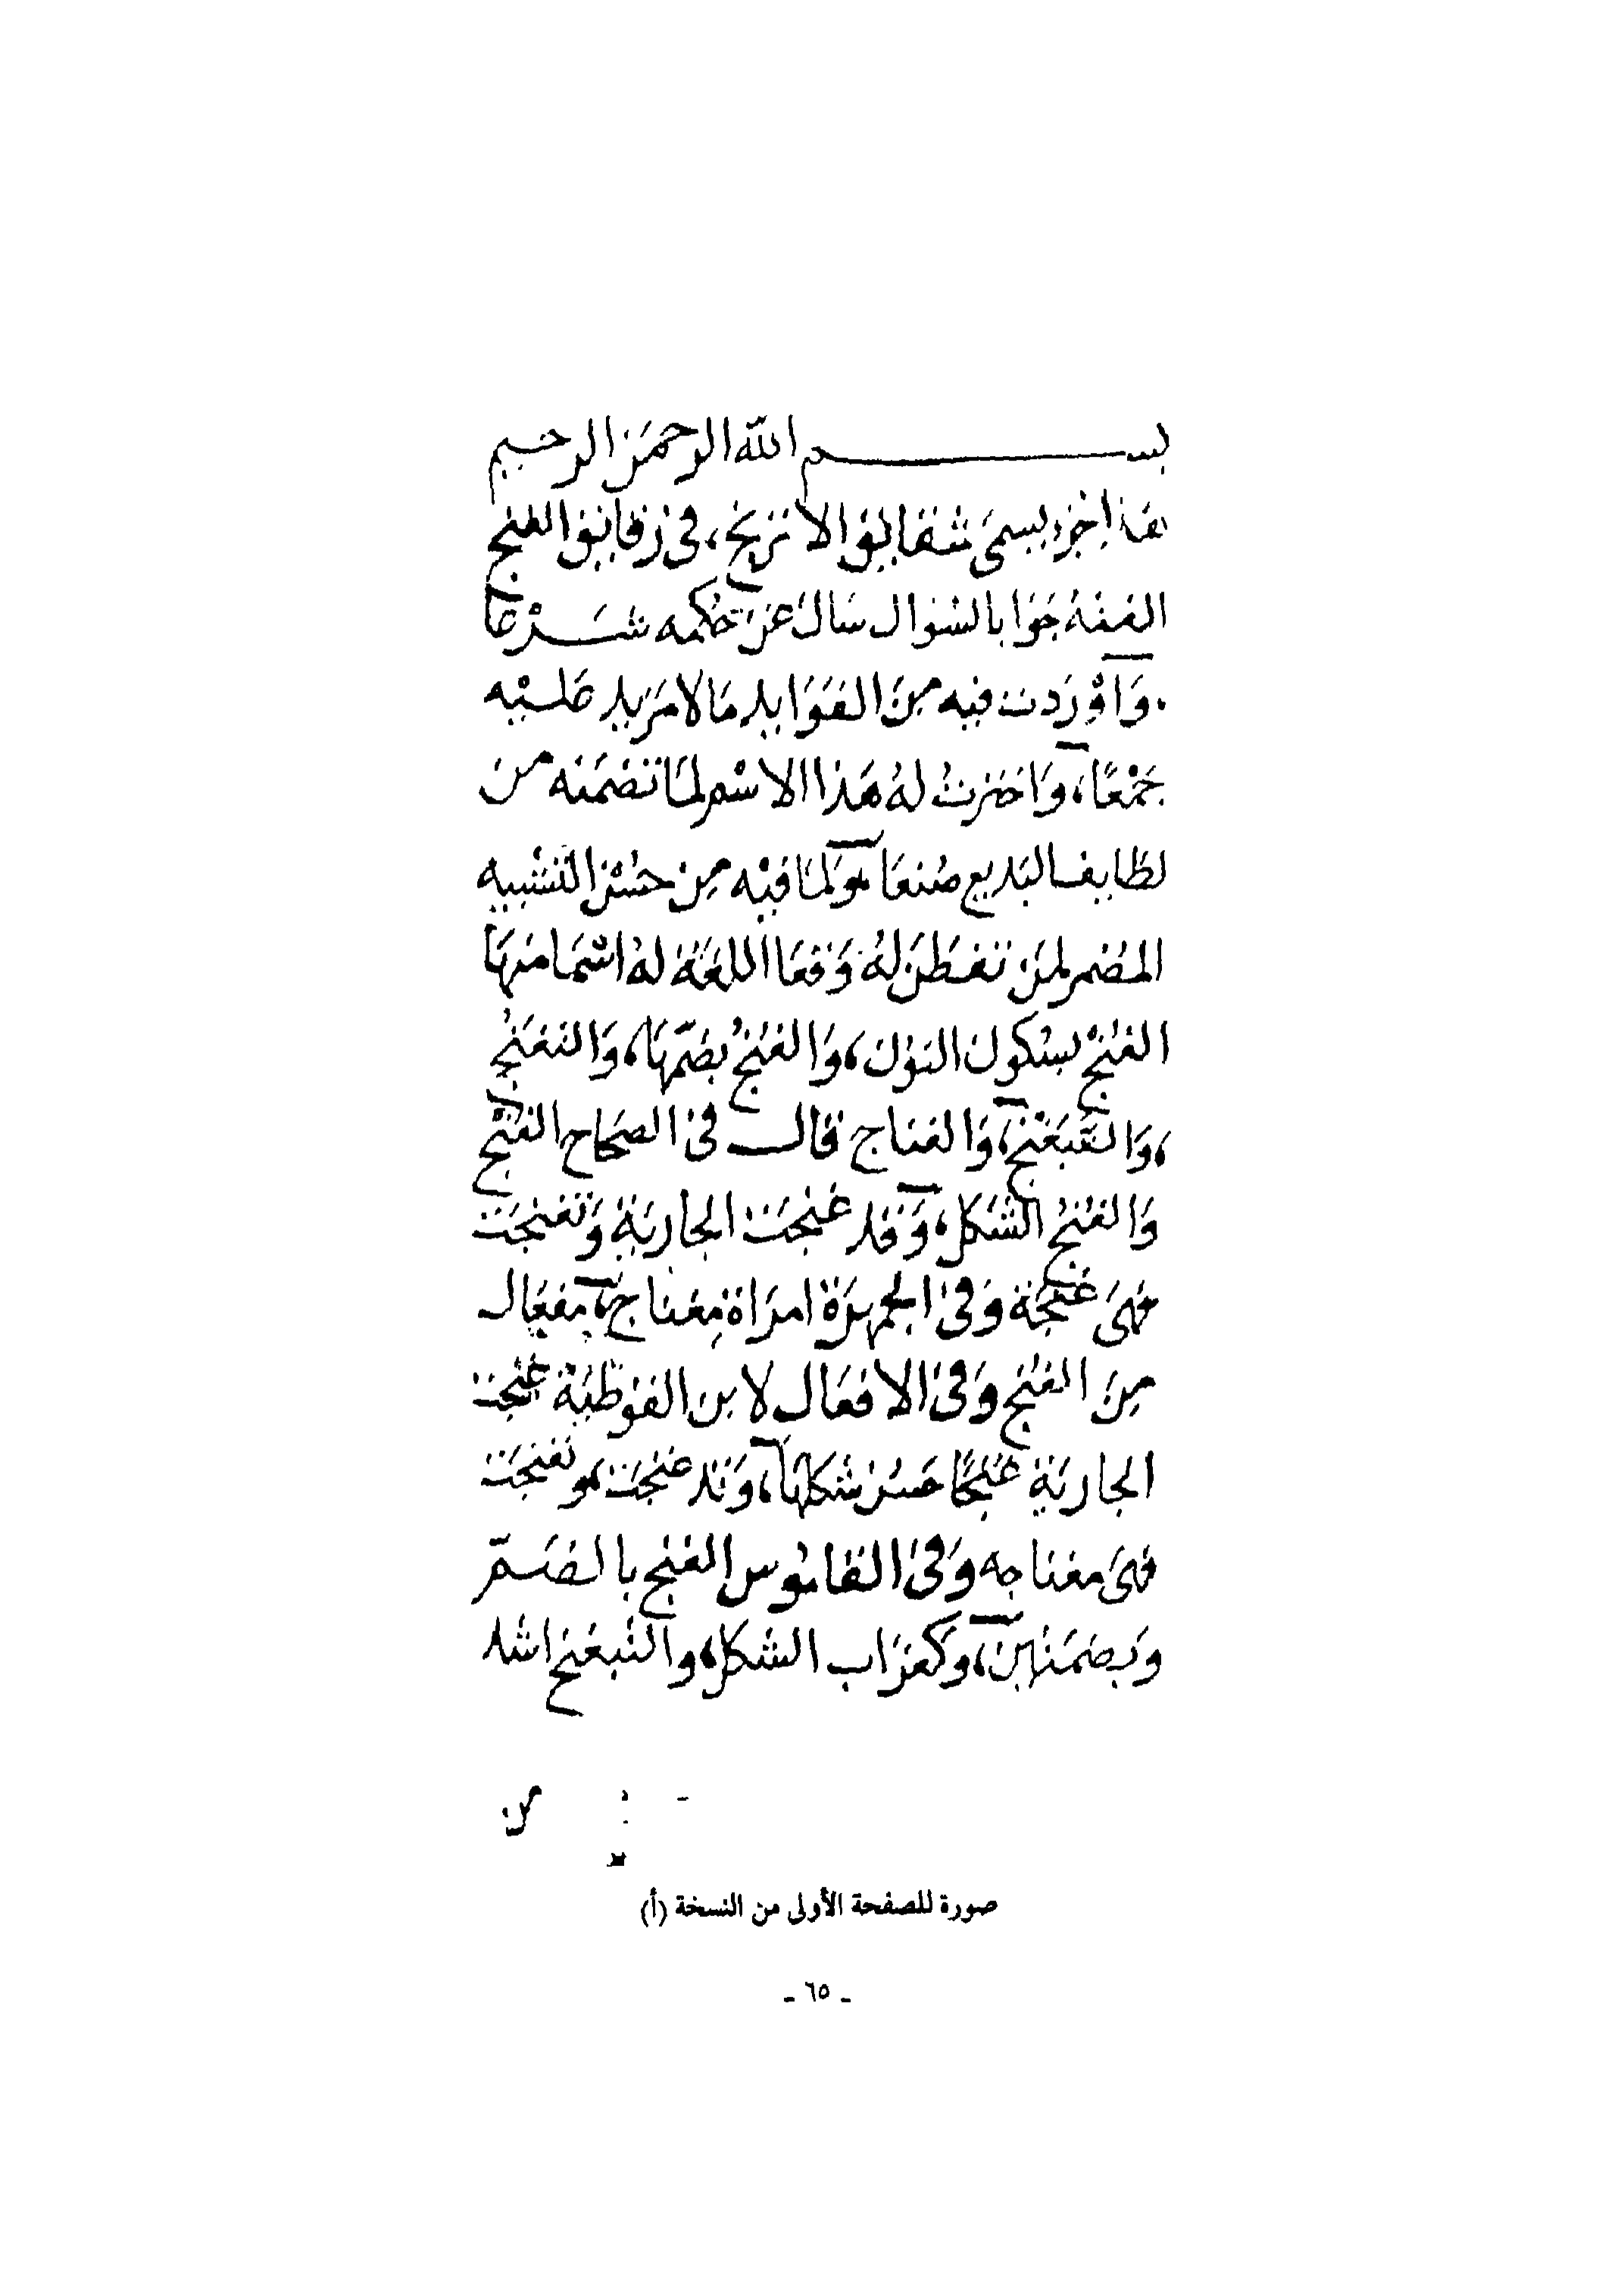 بسم الله الرحمن الرحيم
هذا جزء يسمى شقايق الاترنج، فى رقايق الغنج
الفته جوابا لسوال سال عن حكمه شرعا
واوردت فيه من الفوايد ما لا مزيد عليه
جمعا، واخترت له هذا الاسم لما تضمنه من
لطايف البديع صنعا ولما فيه من حسن التشبيه
المضمر لمن تفطن له وقعا اللغة له اسما منها
الغنج بسكون النون، والغنج بضمها، والتغنج
، والتبغنج، والغناج قال فى الصحاح الغنج
والغنج الشكل، وقد غنجت الجارية وتغنجت
فهى غنجة وفى الجمهرة امراة مغناج، مفعال
من الغنج وفى الافعال لابن القوطية غنجت
الجارية غنجا حسن شكلها، وقد غنجت، وتغنجت
فهى مغناجه وفى القاموس الغنج بالضم
وبضمتين، وكغراب الشكل، والتبغنج اشد
من
صورة للصفحة الأولى من النسخة (أ)
- ٦٥ -